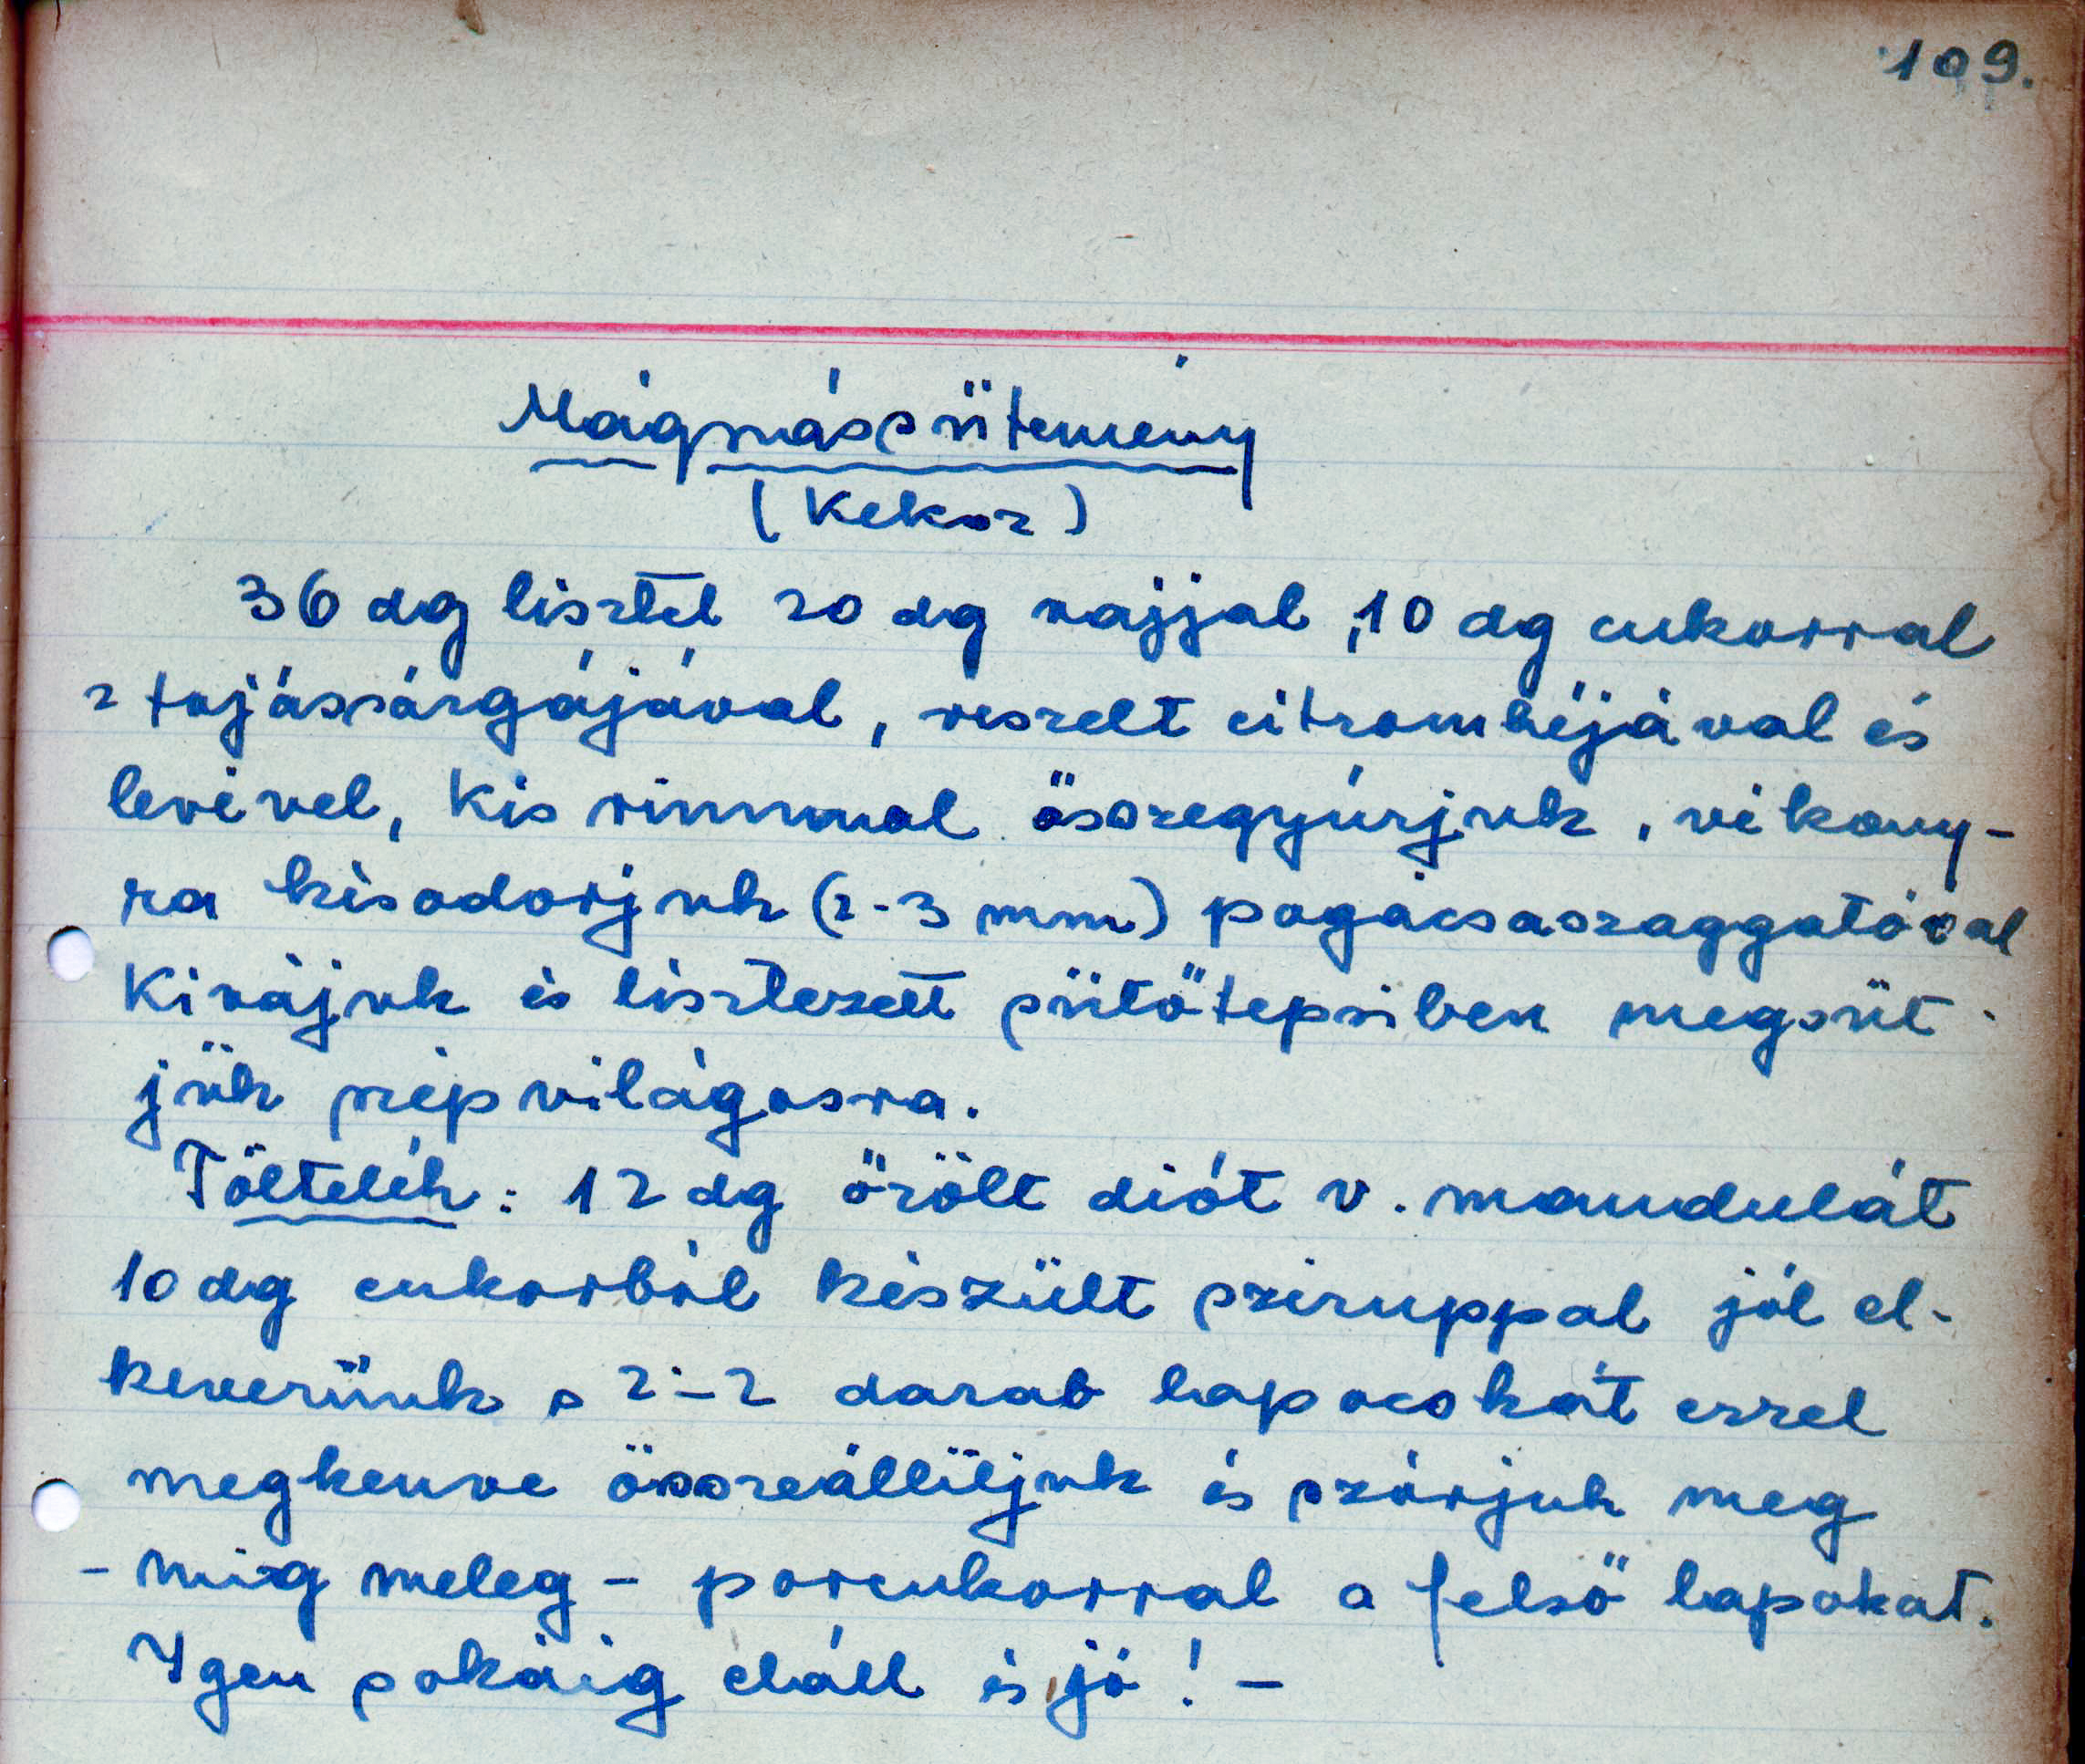 109.
Mágnássütemény
(Kekoz)
36 dg lisztet 20 dg vajjal, 10 dg cukorral
2 tojássárgájával, reszelt citromhéjával és
levével, kis rummal összegyúrjuk, vékony-
ra kisodorjuk (2-3 mm) pogácsaszaggatóval
kivájuk és lisztezett sütőtepsiben megsüt-
jük szép világosra.
Töltelék: 12 dg őrölt diót v. mandulát
10 dg cukorból készült sziruppal jól el-
keverünk s 2-2 darab lapocskát ezzel
megkenve összeállítjuk és szórjuk meg
- míg meleg - porcukorral a felső lapokat.
Igen sokáig eláll és jó! -